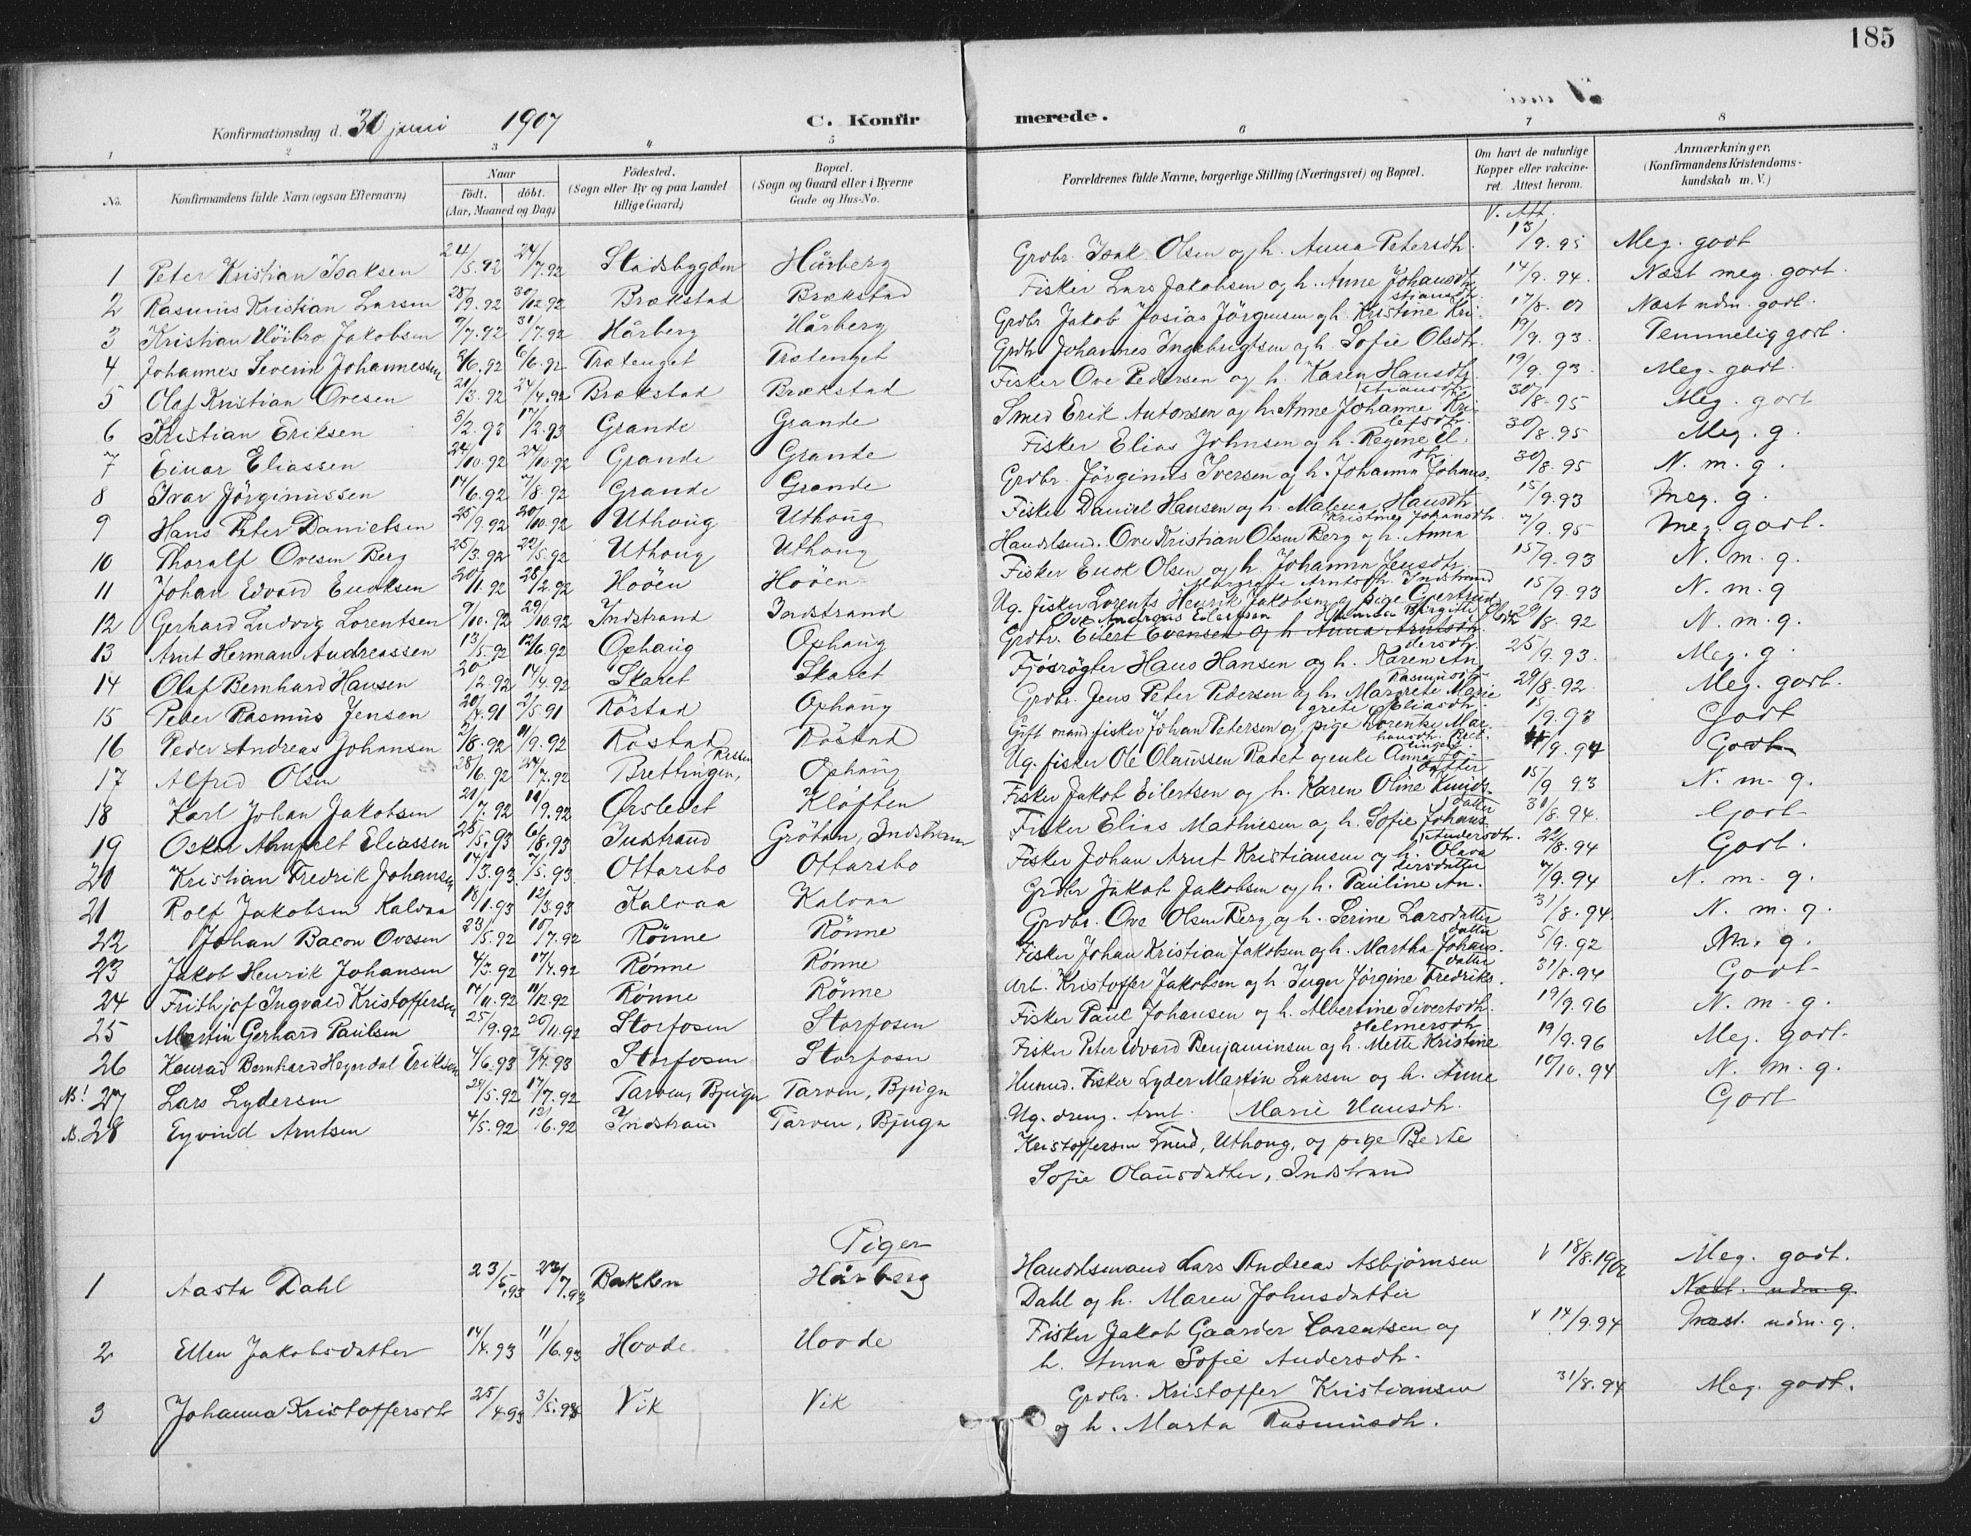 185
Konfirmationsdag d. 30 juni 1907 C. Konfirmerede.
1 2 3 4 5 6 7 8
No. Konfirmandens fulde Navn (ogsaa Efternavn) Naar født, døbt. (Aar, Maaned og Dag) Fødested. (Sogn eller By og paa Landet tillige Gaard) Bopæl. (Sogn og Gaard eller i Byerne Gade og Hus-No. Forældrenes fulde Navne, borgerlige Stilling (Næringsvei) og Bopæl. Om havt de naturlige Kopper eller vakcineret. Attest herom. Anmærkninger. (Konfirmandens Kristendomskundskab m. V.)
V. Att.
1 Peter Kristian Isaksen 24/5.92 24/7.92 Stadsbygden Hårberg Grdbr. Isak Olsen og h. Anna Petersdtr. 13/9.95 Meg. godt
2 Rasmus Kristian Larsen 28/9.92 30/12 92 Brækstad Brækstad Fisker Lars Jakobsen og h. Anne Johansdtr. 14/9.94. Næst meg. godt.
3 Kristian Höibro Jakobsen 9/7.92 31/7.92 Hårberg Hårberg Grdbr Jakob Josias Jörgensen og h. Kristine Kristiansdtr. 17/8.07 Næst udm. godt.
4 Johannes Severin Johannessen 6/6.92 Trætenget Trætenget Grdbr Johannes Ingebrigtsen og h. Sofie Olsdtr. 19/9.93. Temmelig godt.
5 Olaf Kristian Ovesen 20/3.92 24/4.92 Brækstad Brækstad Fisker Ove Pedersen og h. Karen Hansdtr. 19/9.93. Meg. godt.
6 Kristian Eriksen 3/2.93 17/2.93 Grande Grande Smed Erik Antonsen og h. Anne Johanne Kristiansdtr. 30/8.95 Meg. godt
7 Einar Eliassen 24/10.92 27/10.92 Grande Grande Fisker Elias Johnsen og h. Regine 30/8.95 Meg. g.
8 Ivar Jörginussen 14/6.92 7/8.92 Grande Grande Grdbr. Jörginus Iversen og h. Johanna Johansdtr. 30/8.95 N. m. g.
9 Hans Peter Danielsen 25/9.92 20/10.92 Uthoug Uthoug Fisker Daniel Hansen og h. Malena Hansdtr. 15/9.93 Meg. g.
10 Thoralf Ovesen Berg 25/3.92 22/5.92 Uthoug Uthoug Handelsmd. Ove Kristian Olsen Berg og h. Anna Kristine Johansdtr. 7/9.95 Meg. godt.
11 Johan Edvard Enoksen 20/1.92 28/2.92 Hoöen Hoöen Fisker Enok Olsen og h. Johanna Jensdtr. 15/9.93 N. m. g.
12 Gerhard Ludvig Lorentsen 9/10.92 29/10.92 Indstrand Indstrand Ug. fisker Lorents Henrik Jakobsen og pige Gjertrud Margrete Arntsdtr. Indstrand 15/9.93 N. m. g
13 Arnt Herman Andreassen 13/5.92 12/6.92 Ophaug Ophaug Grdbr. Evert Evensen og h. Anna Arntsdtr. Ove Andreas Birgitte 29/8.92 N. m. g.
14 Olaf Bernhard Hansen 20/2.92 17/4.92 Skaret Skaret Fjösrögter Hans Hansen og h. Karen Andersdtr. 25/9.93. Meg. g.
15 Peter Rasmus Jensen 20/4.91 2/5.91 Röstad Ophaug Grdbr. Jens Peter Pedersen og h. Margrete Marie Rasmusdtr. 29/8.92. Meg. godt.
16 Peder Andreas Johansen 2/8.92 11/9.92 Röstad Röstad Gift mand fisker Johan Petersen og pige Lorentse Margrete Eliasdtr. 15/9.93 Godt
17 Alfred Olsen 28/6.92 24/7.92 Brettingen, Ophaug Ug. fisker Ole Olaussen Radet og enke Anna 9.94 Godt
18 Karl Johan Jakobsen 21/7.92 10/9.92 Ørslevet Klöften Fisker Jakob Eilertsen og h. Karen Oline Knudsdatter 15/9 93 N. m. g.
19 Oskar Ahnfelt Eliassen 25/5.93 6/8.93 Indstrand Grötan, Indstrann Fisker Elias Mathiesen og h. Sofie Johansdatter 31/8.94. Godt
20 Kristian Fredrik Johansen 14/3.93 7/5.93 Ottarsbo Ottarsbo Fisker Johan Arnt Kristiansen og h. Olava Andersdtr. 22/8.94 Godt.
21 Rolf Jakobsen Kalvaa 18/1.93 12/3.93 Kalvaa Kalvaa Grdbr Jakob Jakobsen og h. Pauline Andersdatter 7/9.94 N. m. g.
22 Johan Bacon Ovesen 23/5.92 10/7.92 Rönne Rönne Grdbr. Ove Olsen Berg og h. Serine Larsdatter 31/8.94. N. m. g.
23 Jakob Henrik Johansen 4/3.92 17/4.92 Rönne Rönne Fisker Johan Kristian Jakobsen og h. Martha Johansdatter 5/9.92 M. g.
24 Frithjof Ingvald Kristoffersen 14/11.92 11/12.92 Rönne Rönne Arb. Kristoffer Jakobsen og h. Inger Jörgine Fredriksdatter 31/8.94 Godt
25 Martin Gerhard Paulsen 25/9.92 20/11.92 Storfosen Storfosen Fisker Paul Johansen og h. Albertine Sivertsdtr. 19/9.96 N. m. g.
26 Konrad Bernhard Heyerdal Eriksen 4/6.93 9/7.93 Storfosen Storfosen Fisker Peter Edvard Benjaminsen og h. Mette Kristine Helmersdtr 19/9.96 Meg. godt.
NB! 27 Lars Lydersen 24/5.92 17/7.92 Tarven, Bjugn Tarven, Bjugn Husmd. Fisker Lyder Martin Larsen og h. Anne Marie Hansdtr. 10/10.94 N. m. g.
N. 28 Eyvind Arntsen 4/5.92 12/6.92 Indstran Tarven, Bjugn Ug. dreng. Arnt Godt
Kristoffersen Uthoug, og pige Berte
Sofie Olausdatter, Indstrand
Piger
1 Aasta Dahl 23/5.93 23/7.93 Bakken Hårberg Handelsmand Lars Andreas Asbjørnsen V 18/8.1902 Meg. godt.
Dahl og h. Maren Johnsdatter Næst. udm. g
2 Ellen Jakobsdatter 14/4.93 11/6.93 Hovde Hovde Fisker Jakob Gaarder Lorentsen og V 14/9.94 Næst. udm. g.
h. Anna Sofie Andersdtr.
3 Johanna Kristoffersdtr 25/4.93 3/5.93 Vik Vik Grdbr. Kristoffer Kristiansen 31/8.94 Meg. godt.
og h. Marta Rasmusdtr.